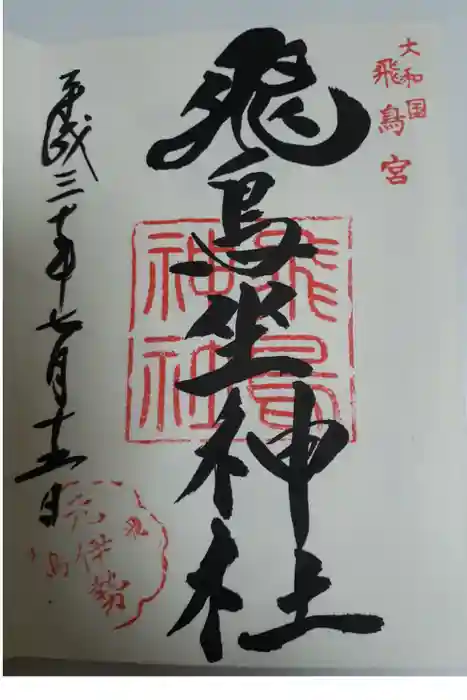 大和国
飛鳥宮
飛鳥坐神社
飛鳥
神社
平成三十年七月十五日
飛鳥
元伊勢